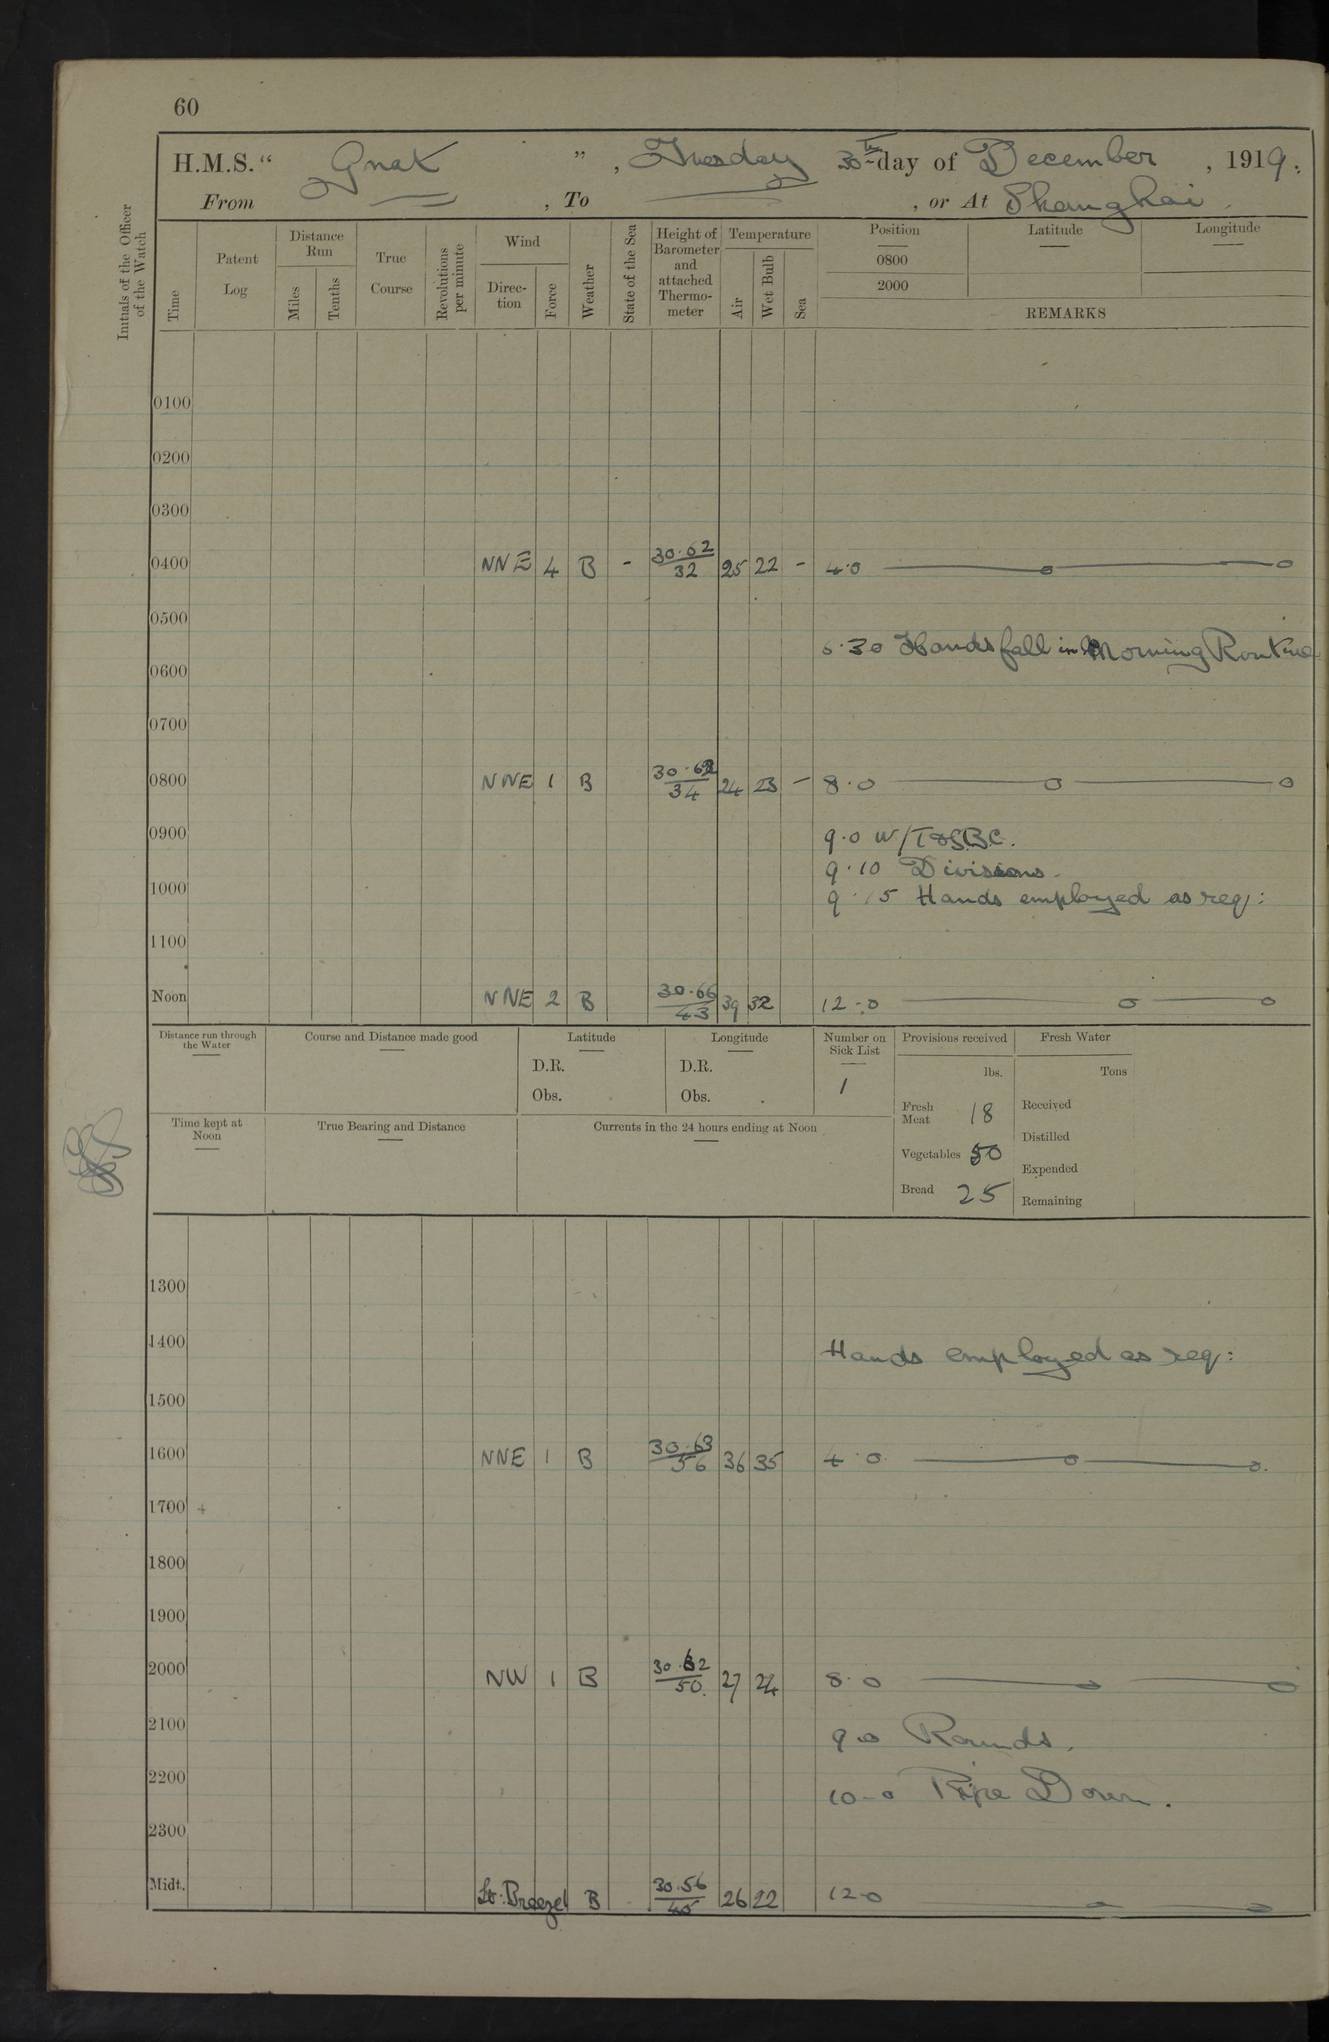 60
H.M.S. “ Gnat ”, Tuesday 30th day of December, 1919.
From , To , or At Shanghai.
Initials of the Officer of the Watch
Time
Patent Log
Distance Run
Miles
Tenths
True Course
Revolutions per minute
Wind
Direc-tion
Force
Weather
State of the Sea
Height of Barometer and attached Thermo-meter
Temperature
Air
Wet Bulb
Sea
Position
0800
2000
Latitude
Longitude
REMARKS
0100
0200
0300
0400 NNE 4 B - 30.62 32 25 22 - 4.0
0500
.30 Hands fall in Morning Routine
0600
0700
0800 NNE 1 B 30.62 34 24 23 - 8.0
0900 9.0 W/T & S.B.C.
9.10 Divisions.
1000 9.15 Hands employed as req:
1100
Noon NNE 2 B 30.66 43 39 32 12.0
Distance run through the Water
Course and Distance made good
Latitude
D.R.
Obs.
Longitude
D.R.
Obs.
Number on Sick List
1
Provisions received
lbs.
Fresh Meat 18
Vegetables 50
Bread 25
Fresh Water
Tons
Received
Distilled
Expended
Remaining
Time kept at Noon
True Bearing and Distance
Currents in the 24 hours ending at Noon
1300
1400 Hands employed as req:
1500
1600 NNE 1 B 30.63 56 36 35 4.0
1700 +
1800
1900
2000 NW 1 B 30.62 50 27 24 8.0
2100 9.0 Rounds.
2200 10-0 Pipe Down.
2300
Midt. Lt. Breeze B 30.56 45 26 22 12.0